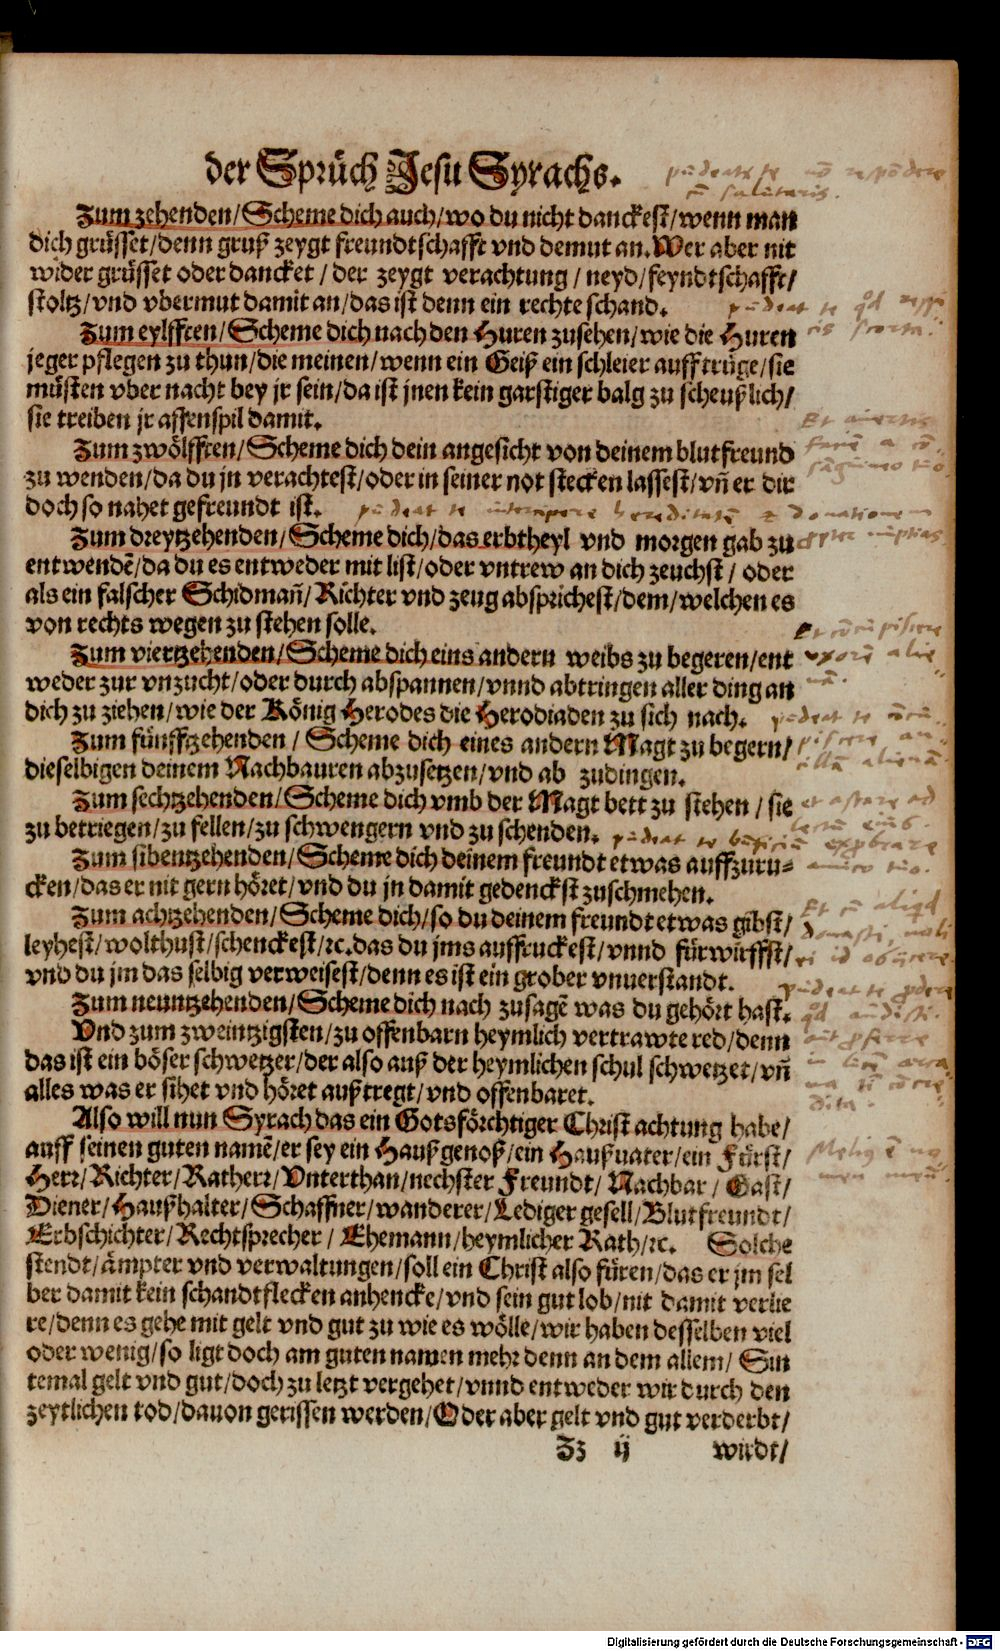 der Sprüch Jesu Syrachs.
pudeat te non respondere
salutaris.
Zum zehenden/Scheme dich auch/wo du nicht danckest/wenn man
dich grüsset/denn gruß zeygt freundtschafft vnd demut an. Wer aber nit
wider grüsset oder dancket / der zeygt verachtung / neyd/feyndtschafft/
stoltz/vnd vbermut damit an/das ist denn ein rechte schand.
pudeat te
scorta.
Zum eylfften/Scheme dich nach den Huren zusehen/wie die Huren
jeger pflegen zu thun/die meinen/wenn ein Geiß ein schleier auff trüge/sie
müsten vber nacht bey jr sein/da ist jnen kein garstiger balg zu scheußlich/
sie treiben jr affenspil damit.
Et
Zum zwölfften/Scheme dich dein angesicht von deinem blutfreund
zu wenden/da du jn verachtest/oder in seiner not stecken lassest/vñ er dir
doch so nahet gefreundt ist.
pudeat te hereditatẽ donationem
Zum dreytzehenden/Scheme dich/das erbtheyl vnd morgen gab zu
entwendẽ/da du es entweder mit list/oder vntrew an dich zeuchst / oder
als ein falscher Schidmañ/Richter vnd zeug absprichest/dem/welchen es
von rechts wegen zu stehen solle.
Zum viertzehenden/Scheme dich eins andern weibs zu begeren/ent
weder zur vnzucht/oder durch abspannen/vnnd abtringen aller ding an
dich zu ziehen/wie der König Herodes die Herodiaden zu sich nach.
pudeat te
Zum fünfftzehenden / Scheme dich eines andern Magt zu begern/
dieselbigen deinem Nachbauren abzusetzen/vnd ab zudingen.
Zum sechtzehenden/Scheme dich vmb der Magt bett zu stehen / sie
zu betriegen/zu fellen/zu schwengern vnd zu schenden.
pudeat te
Zum sibentzehenden/Scheme dich deinem freundt etwas auffzuru-
cken/das er nit gern höret/vnd du jn damit gedenckst zuschmehen.
Zum achtzehenden/Scheme dich/so du deinem freundt etwas gibst/
leyhest/wolthust/schenckest/ꝛc.das du jms auffruckest/vnnd fürwürffst/
vnd du jm das selbig verweisest/denn es ist ein grober vnuerstandt.
Zum neuntzehenden/Scheme dich nach zusagẽ was du gehört hast.
Vnd zum zweintzigsten/zu offenbarn heymlich vertrawte red/denn
das ist ein böser schwetzer/der also auß der heymlichen schul schwetzet/vñ
alles was er sihet vnd höret außtregt/vnd offenbaret.
Also will nun Syrach das ein Gotsförchtiger Christ achtung habe/
auff seinen guten namẽ/er sey ein Haußgenoß/ein Haußuater/ein Fürst/
Herr/Richter/Ratherr/Vnterthan/nechster Freundt/ Nachbar / Gast/
Diener/Haußhalter/Schaffner/wanderer/Lediger gesell/Blutfreundt/
Erbschichter/Rechtsprecher / Ehemann/heymlicher Rath/ꝛc. Solche
stendt/ämpter vnd verwaltungen/soll ein Christ also füren/das er jm sel
ber damit kein schandtflecken anhencke/vnd sein gut lob/nit damit verlie
re/denn es gehe mit gelt vnd gut zu wie es wölle/wir haben desselben viel
oder wenig/so ligt doch am guten namen mehr denn an dem allem/ Sin
temal gelt vnd gut/doch zu letzt vergehet/vnnd entweder wir durch den
zeytlichen tod/dauon gerissen werden/Oder aber gelt vnd gut verderbt/
Zz ij wirdt/
Digitalisierung gefördert durch die Deutsche Forschungsgemeinschaft - DFG